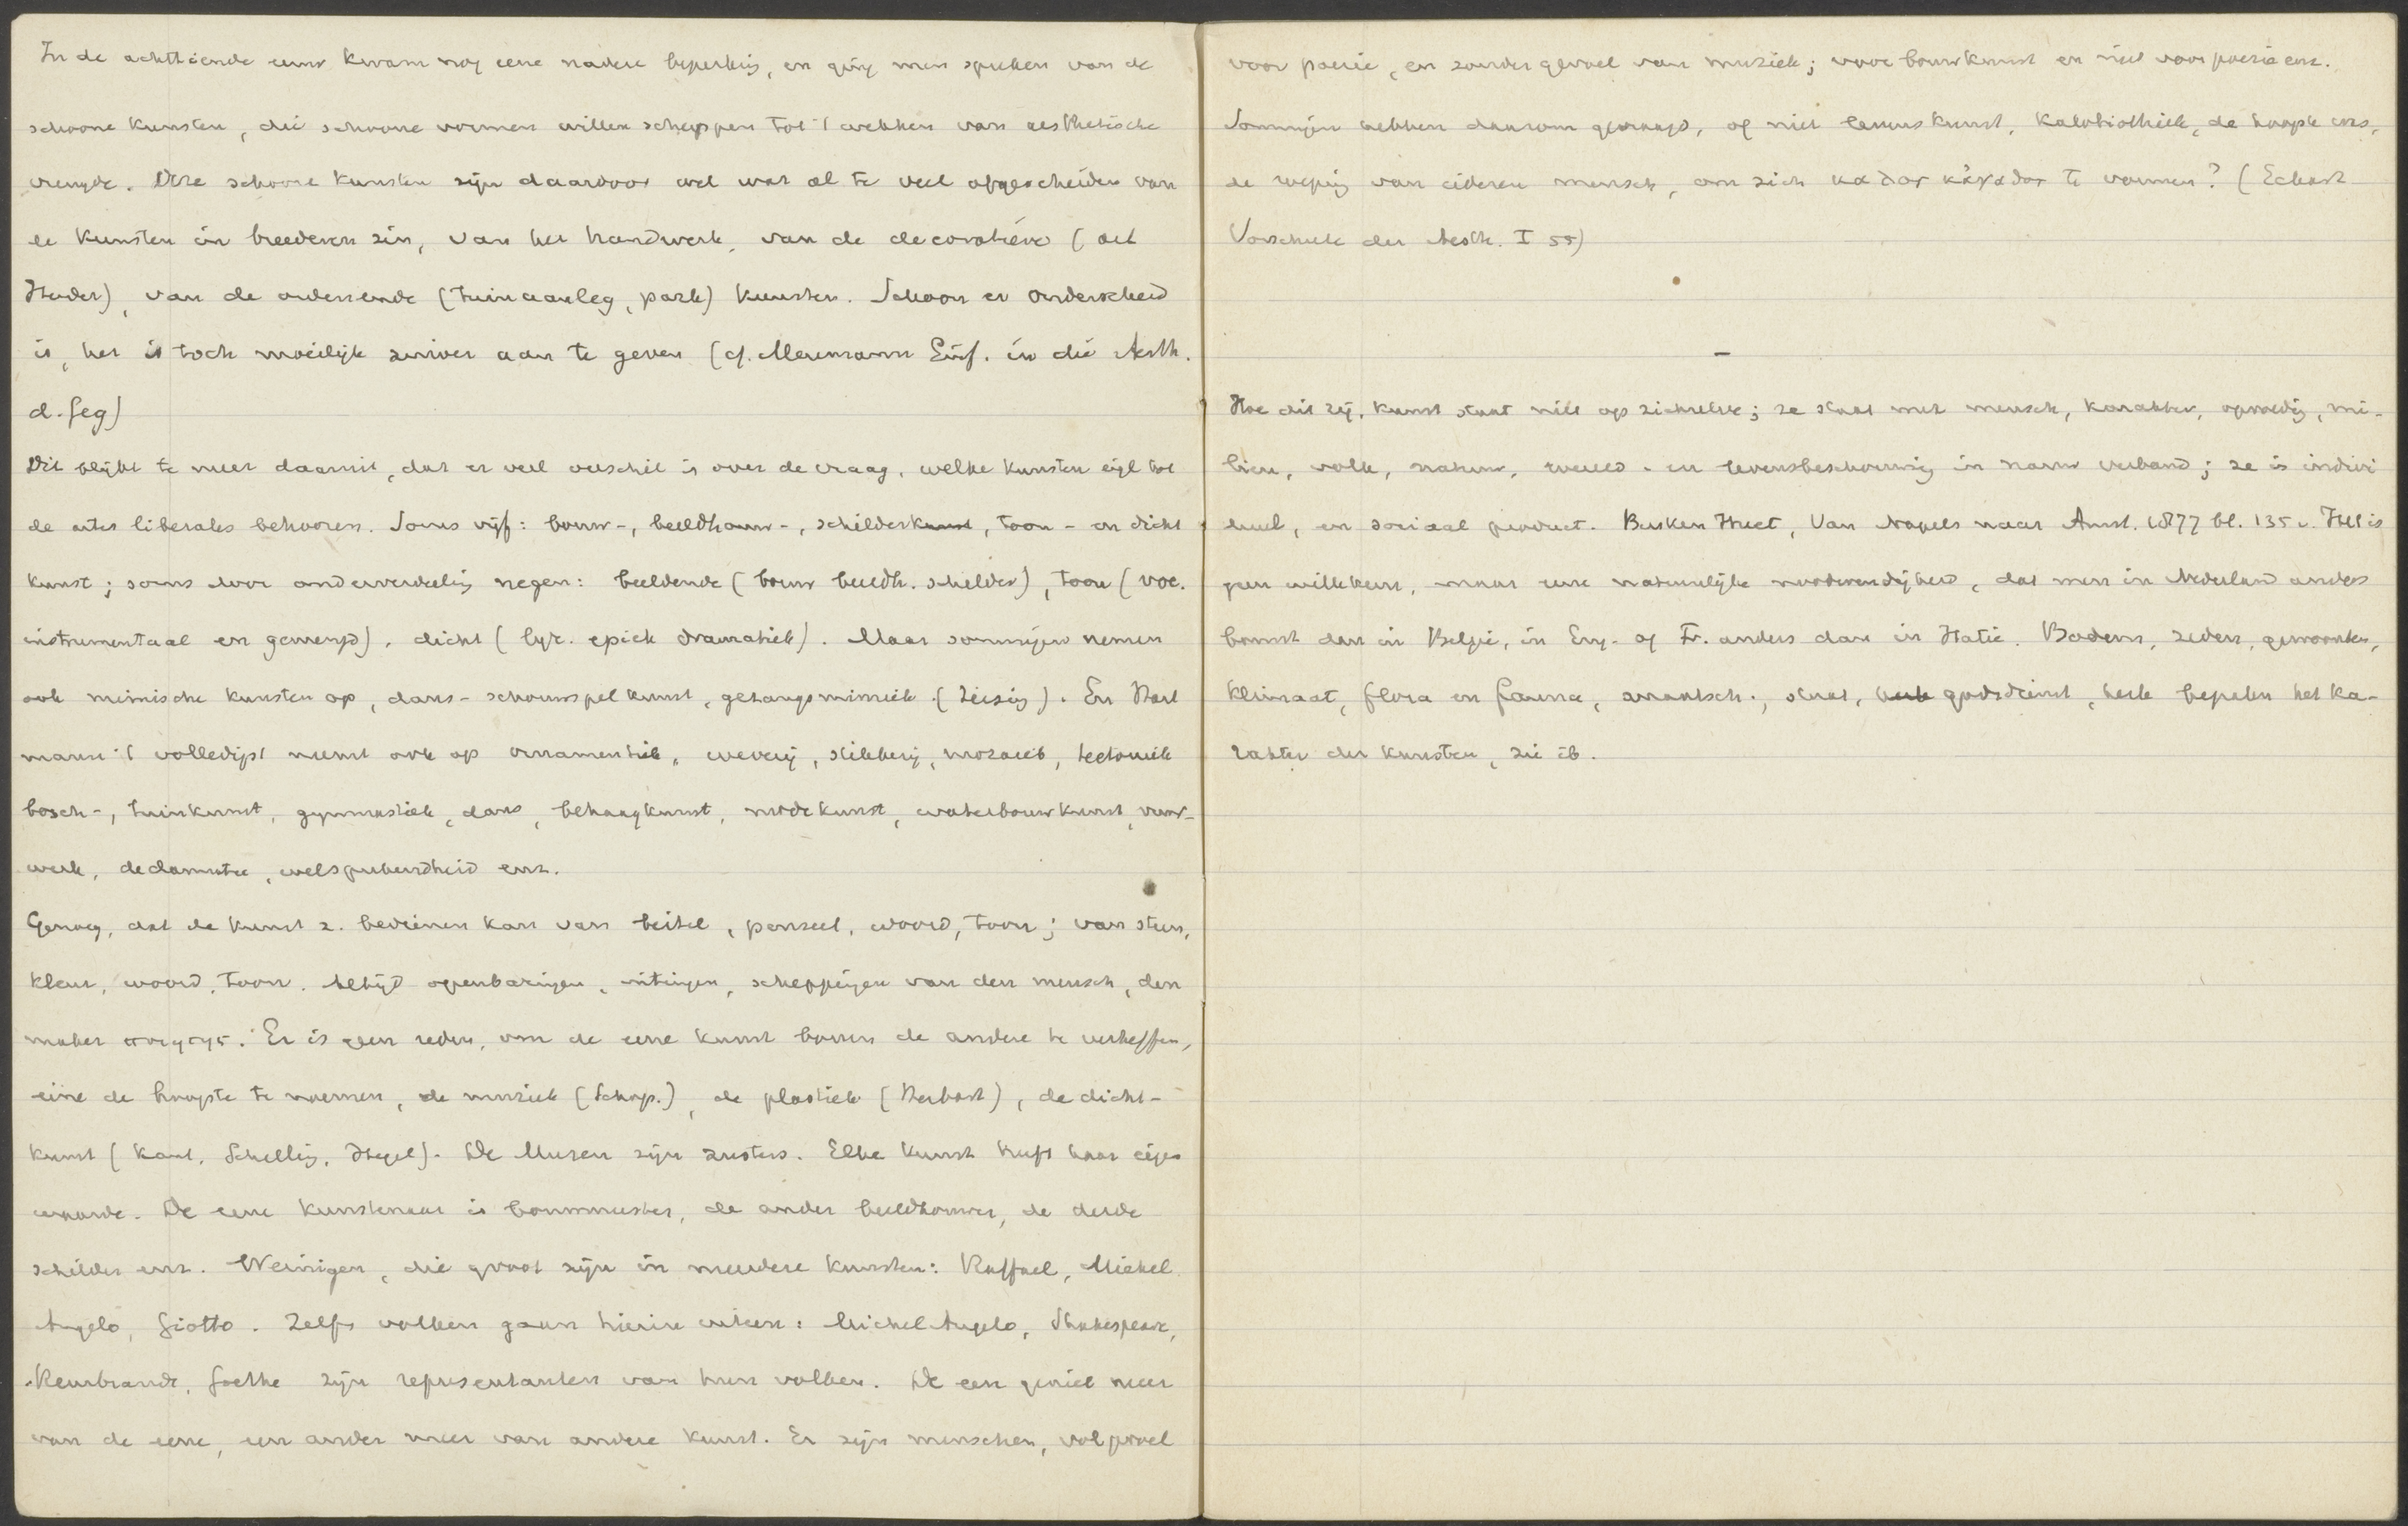 In de achttiende eeuw kwam nog eene nadere beperking, en ging men spreken van de
schoone kunsten, die schoone vormen willen scheppen tot 't wekken van aesthetische
vreugde. Deze schoone kunsten zijn daardoor wel wat al te veel afgescheiden van
de kunsten in breederen zin, van het handwerk, van de decoratieve (
), van de ordenende (tuinaanleg, park) kunsten. Schoon er onderscheid
is, het is toch moeilijk zuiver aan te geven (cf. Meumann Einf. in die Aesth.
d. Geg)
Dit blijkt te meer daaruit, dat er veel verschil is over de vraag, welke kunsten eigl tot
de artes liberales behooren. Soms vijf: bouw-, beeldhouw-, schilderkunst, toon- en dicht
kunst; soms door onderverdeeling negen: beeldende (bouw beeldh. schilder), toon (voc.
instrumentaal en gemengd), dicht (lyr. epiek dramatiek). Maar sommigen nemen
ook mimische kunsten op, dans- schouwspelkunst, gezangsmimiek (Zeising). En Hart
mann 't volledigst neemt ook op ornamentiek, weverij, stikkerij, mozaiek, tectoniek
bosch-, tuinkunst, gymnastiek, dans, behangkunst, modekunst, waterbouwkunst, vuur-
werk, declamatie, welsprekendheid enz.
Genoeg, dat de kunst z. bedienen kan van beitel, penseel, woord, toon; van steen,
kleur, woord, toon. Altijd openbaringen, uitingen, scheppingen van den mensch, den
maker ποιητης. Er is geen reden, om de eene kunst boven de andere te verheffen,
eene de hoogste te noemen, de muziek (Schop.), de plastiek (Herbart), de dicht-
kunst (Kant, Schelling, Hegel). De Muzen zijn zusters. Elke kunst heeft haar eigen
waarde. De eene kunstenaar is bouwmeester, de ander beeldhouwer, de derde
schilder enz. Weinigen, die groot zijn in meerdere kunsten: Raffael, Michel
Angelo, Giotto. Zelfs volken gaan hierin uiteen: Michel Angelo, Shakespeare,
Rembrandt, Goethe zijn representanten van hun volken. De een geniet meer
van de eene, een ander meer van andere kunst. Er zijn menschen, vol gevoel
voor poezie, en zonder gevoel van muziek; voor bouwkunst en niet voor poezie enz.
Sommigen hebben daarom gevraagd, of niet levenskunst, kalobiothiek, de hoogste was,
de roeping van iederen mensch, om zich καλον κἀγαθον te vormen? (Eckart
Vorschule der Aesth. I 55)
-
Hoe dit zij, kunst staat niet op zichzelve; ze staat met mensch, karakter, opvoeding, mi-
lieu, volk, natuur, wereld- en levensbeschouwing in nauw verband; ze is indivi
dueel, en sociaal product. Busken Huet, Van Napels naar Amst. 1877 bl. 135 v. Het is
geen willekeur, maar eene natuurlijke noodwendigheid, dat men in Nederland anders
bouwt dan in Belgie, in Eng. of Fr. anders dan in Italie. Bodem, zeden, gewoonten,
klimaat, flora en fauna, maatsch., staat, godsdienst, kerk bepalen het ka-
rakter der kunsten, zie ib.